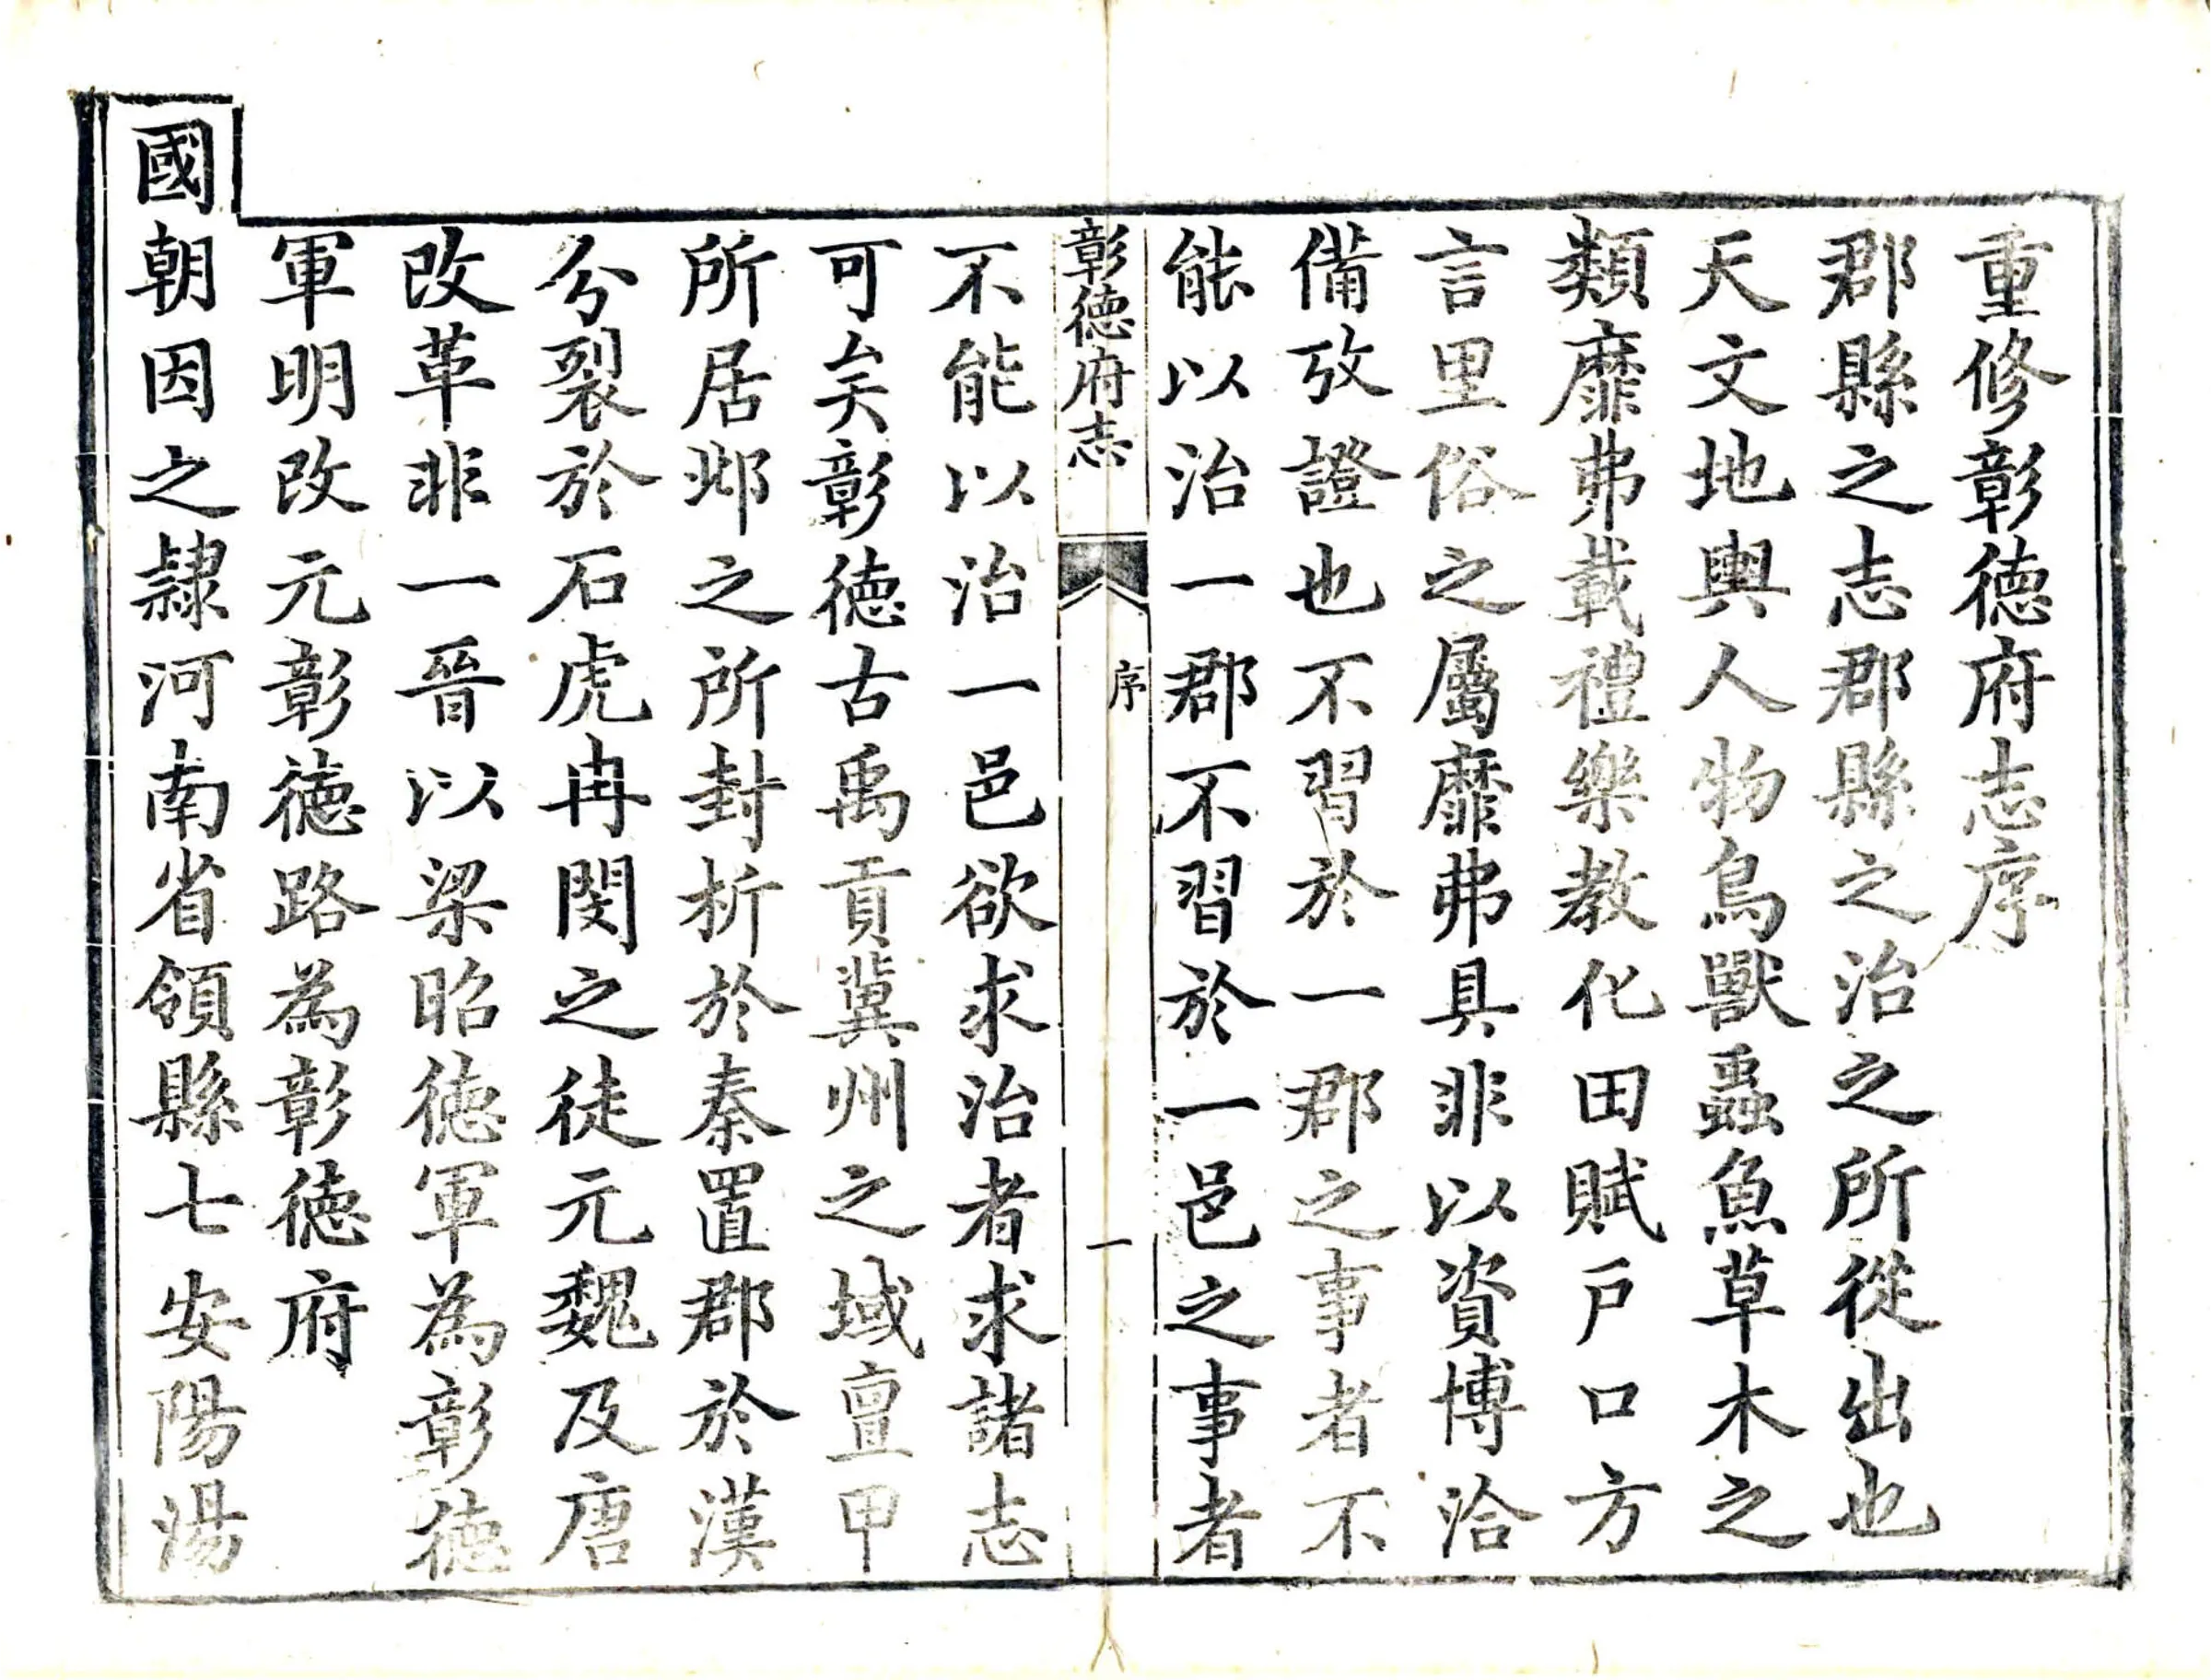 重修彰德府志序
郡縣之志郡縣之治之所從出也
天文地輿人物鳥獸蟲魚草木之
類靡弗載禮樂教化田賦戶口方
言里俗之屬靡弗具非以資博洽
備攷證也不習於一郡之事者不
能以治一郡不習於一邑之事者
彰德府志
序
一
不能以治一邑欲求治者求諸志
可矣彰德古禹貢冀州之域亶甲
所居邶之所封析於秦置郡於漢
分裂於石虎冉閔之徒元魏及唐
改革非一晉以梁昭德軍為彰德
軍明改元彰德路為彰德府
國朝因之隸河南省領縣七安陽湯